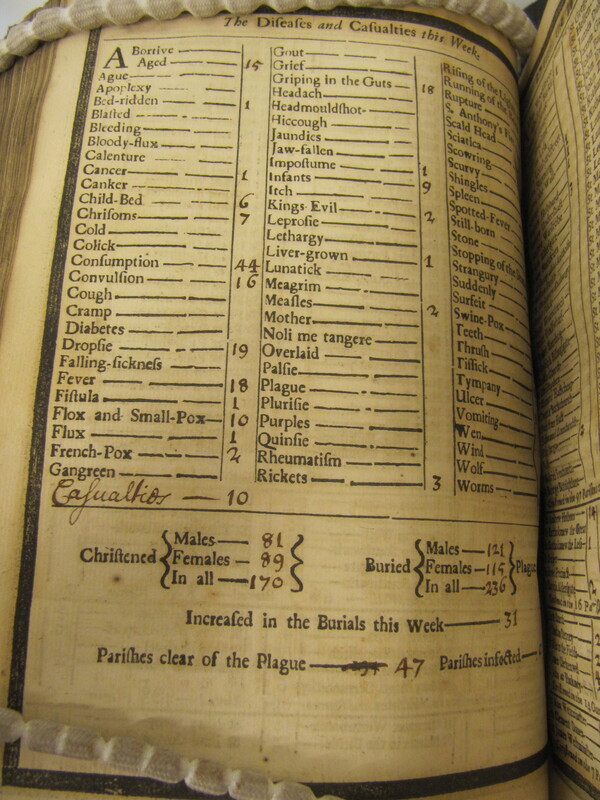 The Diſeaſes and Caſualties this Weeke
Abortive
Aged 15
Ague
Apoplexy
Bed-ridden 1
Blaſted
Bleeding
Bloody-flux
Calenture
Cancer 1
Canker
Child-Bed 6
Chriſoms 7
Cold
Colick
Conſumption 44
Convulſion 16
Cough
Cramp
Diabetes
Dropſie 19
Falling-ſickneſs
Fever 18
Fiſtula 1
Flox and Small-Pox 10
Flux 1
French-Pox 2
Gangreen
Caſualties 10
Gout
Grief
Griping in the Guts 18
Headach
Headmouldſhot
Hiccough
Jaundies
Jaw-fallen
Impoſtume 1
Infants 9
Itch
Kings-Evil 2
Leproſie
Lethargy
Liver-grown 1
Lunatick
Meagrim
Meaſles 2
Mother
Noli me tangere
Overlaid
Palſie
Plague
Pluriſie
Purples
Quinſie
Rheumatiſm
Rickets 3
Riſing of the
Running of the
Rupture
S. Anthony's
Scald Head
Sciatica
Scowring
Scurvy
Shingles
Spleen
Spotted-Fever
Still-born
Stone
Stopping of the
Strangury
Suddenly
Surfeit
Swine-Pox
Teeth
Thruſh
Tiſſick
Tympany
Ulcer
Vomiting
Wen
Wind
Wolf
Worms
Chriſtened { Males 81
Females 89
In all 170 }
Buried { Males 121
Females 115
In all 236 } Plague
Increaſed in the Burials this Week 31
Pariſhes clear of the Plague 47 Pariſhes infected